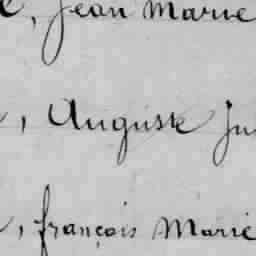 , Jean Marie
, Auguste Ju
, françois Marie